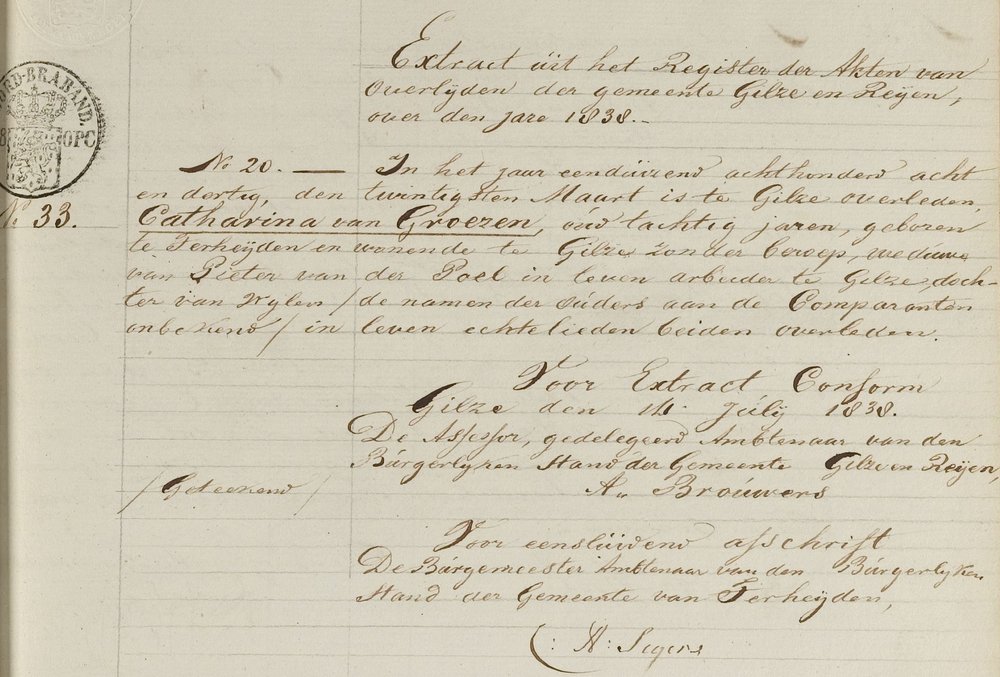 Extract uit het Register der Akten van
Overlyden der gemeente Gilze en Reijen,
over den jare 1838.-
ORD-BRABAND.
OPC
No 20. — In het jaar eenduizend achthonderd acht
en dertig, den twintigsten Maart is te Gilze overleden,
No 33.
Catharina van Groezen, oud tachtig jaren, geboren
te Terheyden en wonende te Gilze zonder beroep, weduwe
van Pieter van der Poel in leven arbeider te Gilze, doch-
ter van Wylen / de namen der ouders aan de Comparanten
onbekend / in leven echtelieden beiden overleden.
Voor Extract Conform
Gilze den 14 Julij 1838.
De Assessor, gedelegeerd Ambtenaar van den
Burgerlyken Stand der Gemeente Gilze en Reijen,
/ Geteekend / A. Brouwers
Voor eensluidend afschrift
De Burgemeester Ambtenaar van den Burgerlyken
Stand der Gemeente van Terheyden,
(: A: Segers